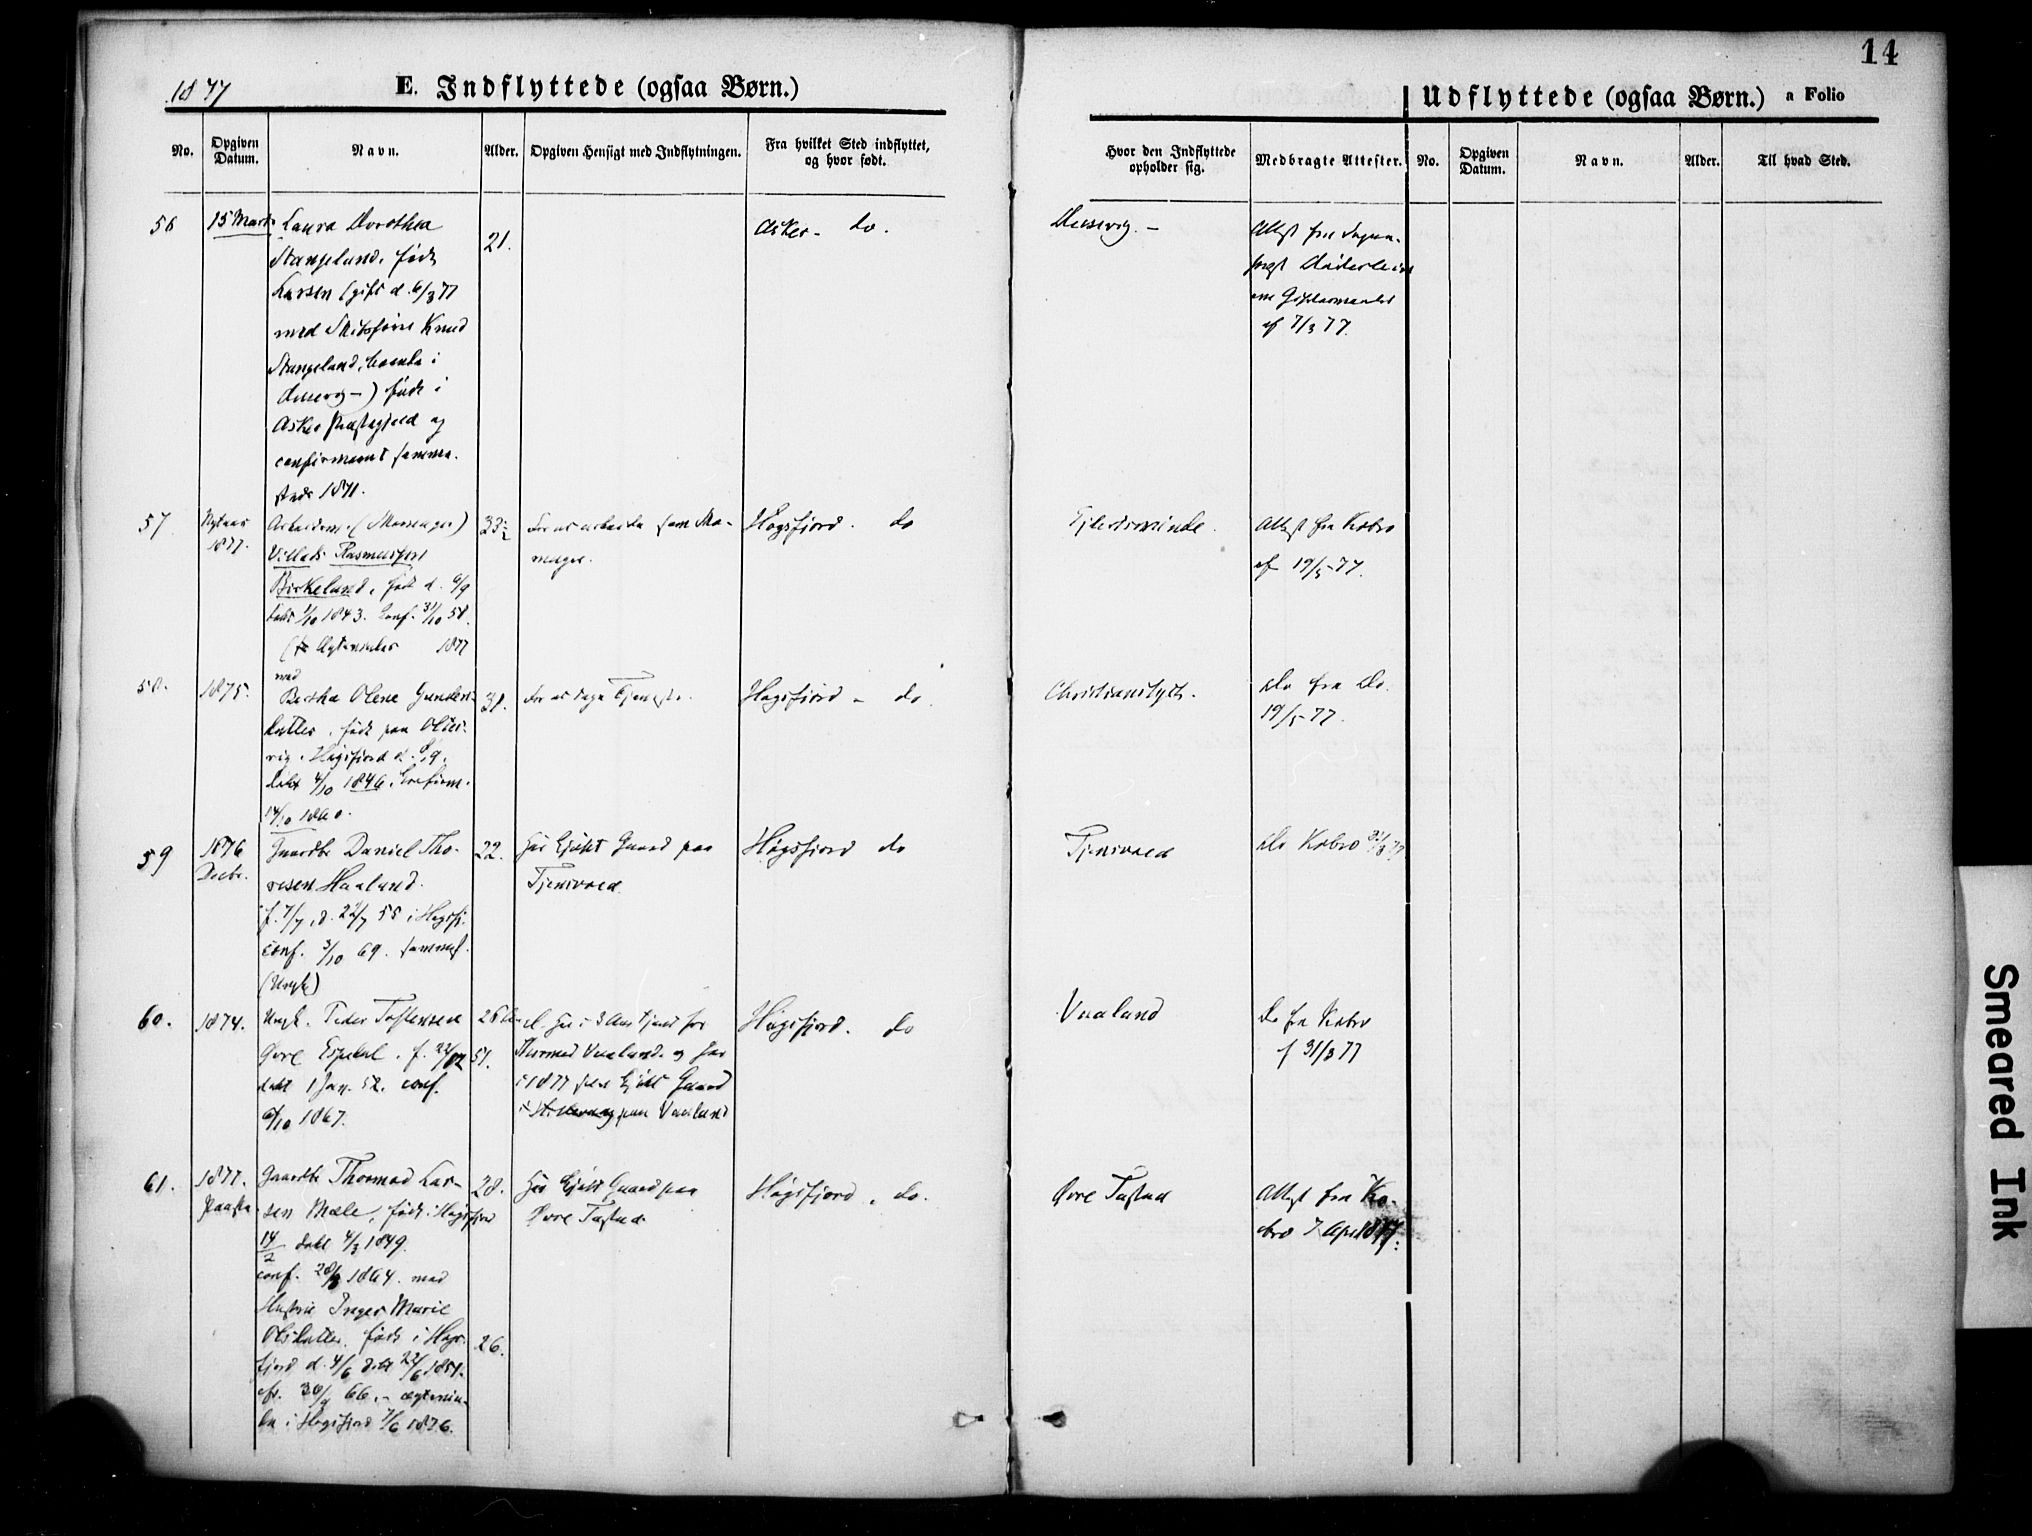 14
1877
E. Indflyttede (ogsaa Børn.)
Udflyttede (ogsaa Børn.) a Folio
No.
Opgiven Datum.
Navn.
Alder.
Opgiven Hensigt med Indflytningen.
Fra hvilket Sted indflyttet, og hvor født.
Hvor den Indflyttede opholder sig.
Medbragte Attester.
No.
Opgiven Datum.
Navn.
Alder.
Til hvad Sted.
56
15 Marts
Laura Dorothea
Stangeland, født
Larsen (gift d. 6/3 77
med Skibsfører Knud
Stangeland, boende i
Dusevig -) født i
Asker Præstegjeld og
confirmeret samme-
steds 1871.
21.
Asker - do.
Dusevig. -
Attest fra Sogne-
præst
om Giftermaalet
af 7/3 77.
57
1877.
Arbeidsm. (Massenger)
Villads Rasmussen
Birkeland, født d. 6/9
døbt 1/10 1843. Conf. 31/10 58.
1877
med
33 1/2
For at arbeide som Ma-
Høgsfjord. do
Ejlertsminde.
Attest fra Kobro
af 19/5 77.
58.
1875.
Bertha Olene Gunders-
datter, født paa Olter-
vig i Høgsfjord d. 8/9.
døbt 4/10 1846. Confirm.
14/10 1860.
31.
For at tage Tjeneste.
Høgsfjord - do.
Christianslyst.
do fra do.
19/5 77.
59
1876
Decbr.
Gaardbr Daniel Tho-
resen Haaland.
f. 7/7, d. 22/7 55 i Høgsfj.
conf. 3/10 69. sammest.
(Ungk)
22.
Har Kjøbt Gaard paa
Tjensvold.
Høgsfjord do
Tjensvold
do Kobro 31/3 77
60.
1874.
Ungk. Peder Tostensen
Øvre Espedal, f. 22/12 51.
døbt 1 Jan. 52. conf.
6/10 1867.
Har i 3 Aar tjent for
Thormod Vaaland og har
i 1877 selv Kjøbt Gaard
paa Vaaland
Høgsfjord. do
Vaaland
do fra Kobro
f 31/3 77
61.
1877.
Paaske
Gaardbr Thormod Lar-
sen Mæle, født i Høgsfjord
14/2 døbt 4/3 1849.
conf. 28/8 1864. med
Hustru Inger Marie
Olsdatter, født i Høgs-
fjord d. 4/6 døbt 22/6 1851.
cfr. 30/9 66. - ægtevie-
de i Høgsfjord 7/6 1876.
28.
26.
Har Kjøbt Gaard paa
Øvre Tasted.
Høgsfjord, do.
Øvre Tasted
Attest fra Ko-
bro 7 April 1877.
Smeared Ink